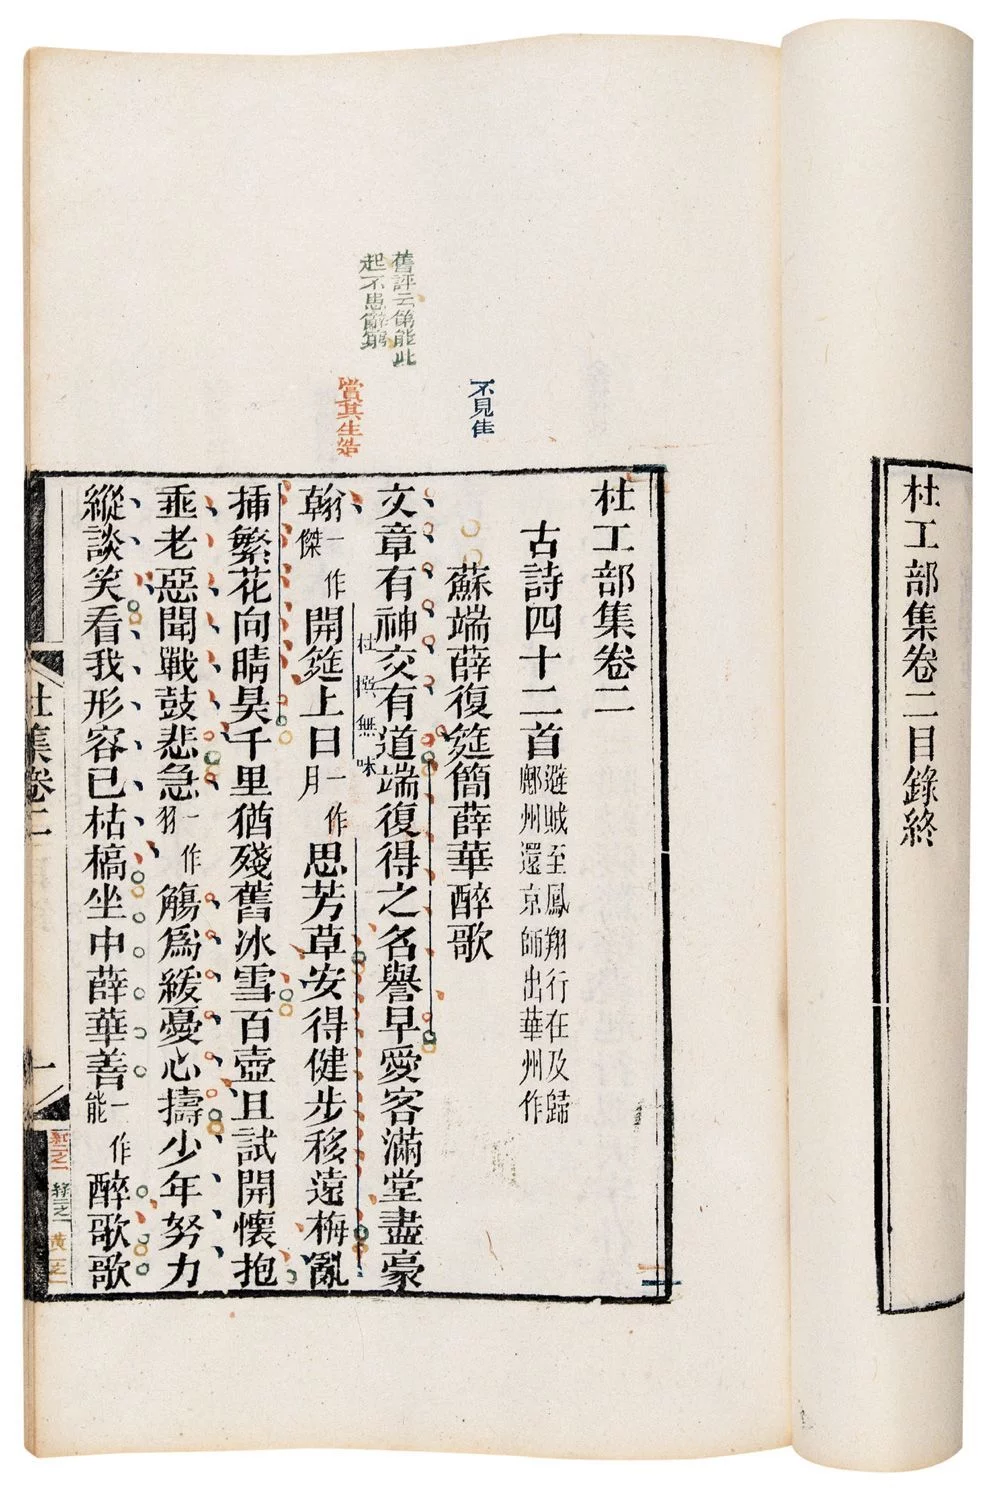 杜工部集卷二目錄終
杜工部集卷二
古詩四十二首避賊至鳳翔行在及歸
鄜州還京師出華州作
不見佳
蘇端薛復筵簡薛華醉歌
舊評云第能此
起不患辭窮
文章有神交有道端復得之名譽早愛客滿堂盡豪
杜撰無味
賞其生造
翰一作傑開筵上日一作月思芳草安得健步移遠梅亂
插繁花向晴昊千里猶殘舊冰雪百壺且試開懷抱
垂老惡聞戰鼓悲急一作羽觴為緩憂心擣少年努力
縱談笑看我形容已枯槁坐中薛華善一作能醉歌歌
杜集卷二
一